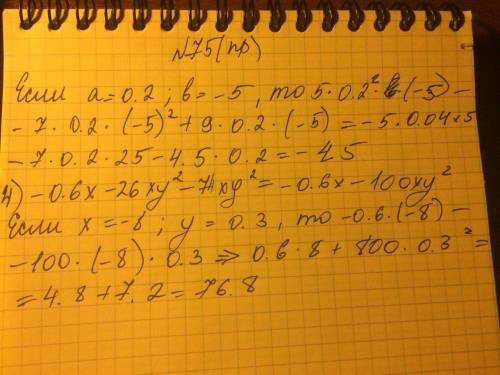 N75(пр)
Если a=0.2; b=-5, то 5·0.2²·(-5)-
-7·0.2·(-5)²+9·0.2·(-5)=-5·0.04×5
-7·0.2·25-4.5·0.2=-45
4)-0.6x-26xy²-74xy²=-0.6x-100xy²
Если x=-8; y=0.3, то -0.6·(-8)-
-100·(-8)·0.3⇒0.6·8+800·0.3²=
=4.8+7.2=76.8